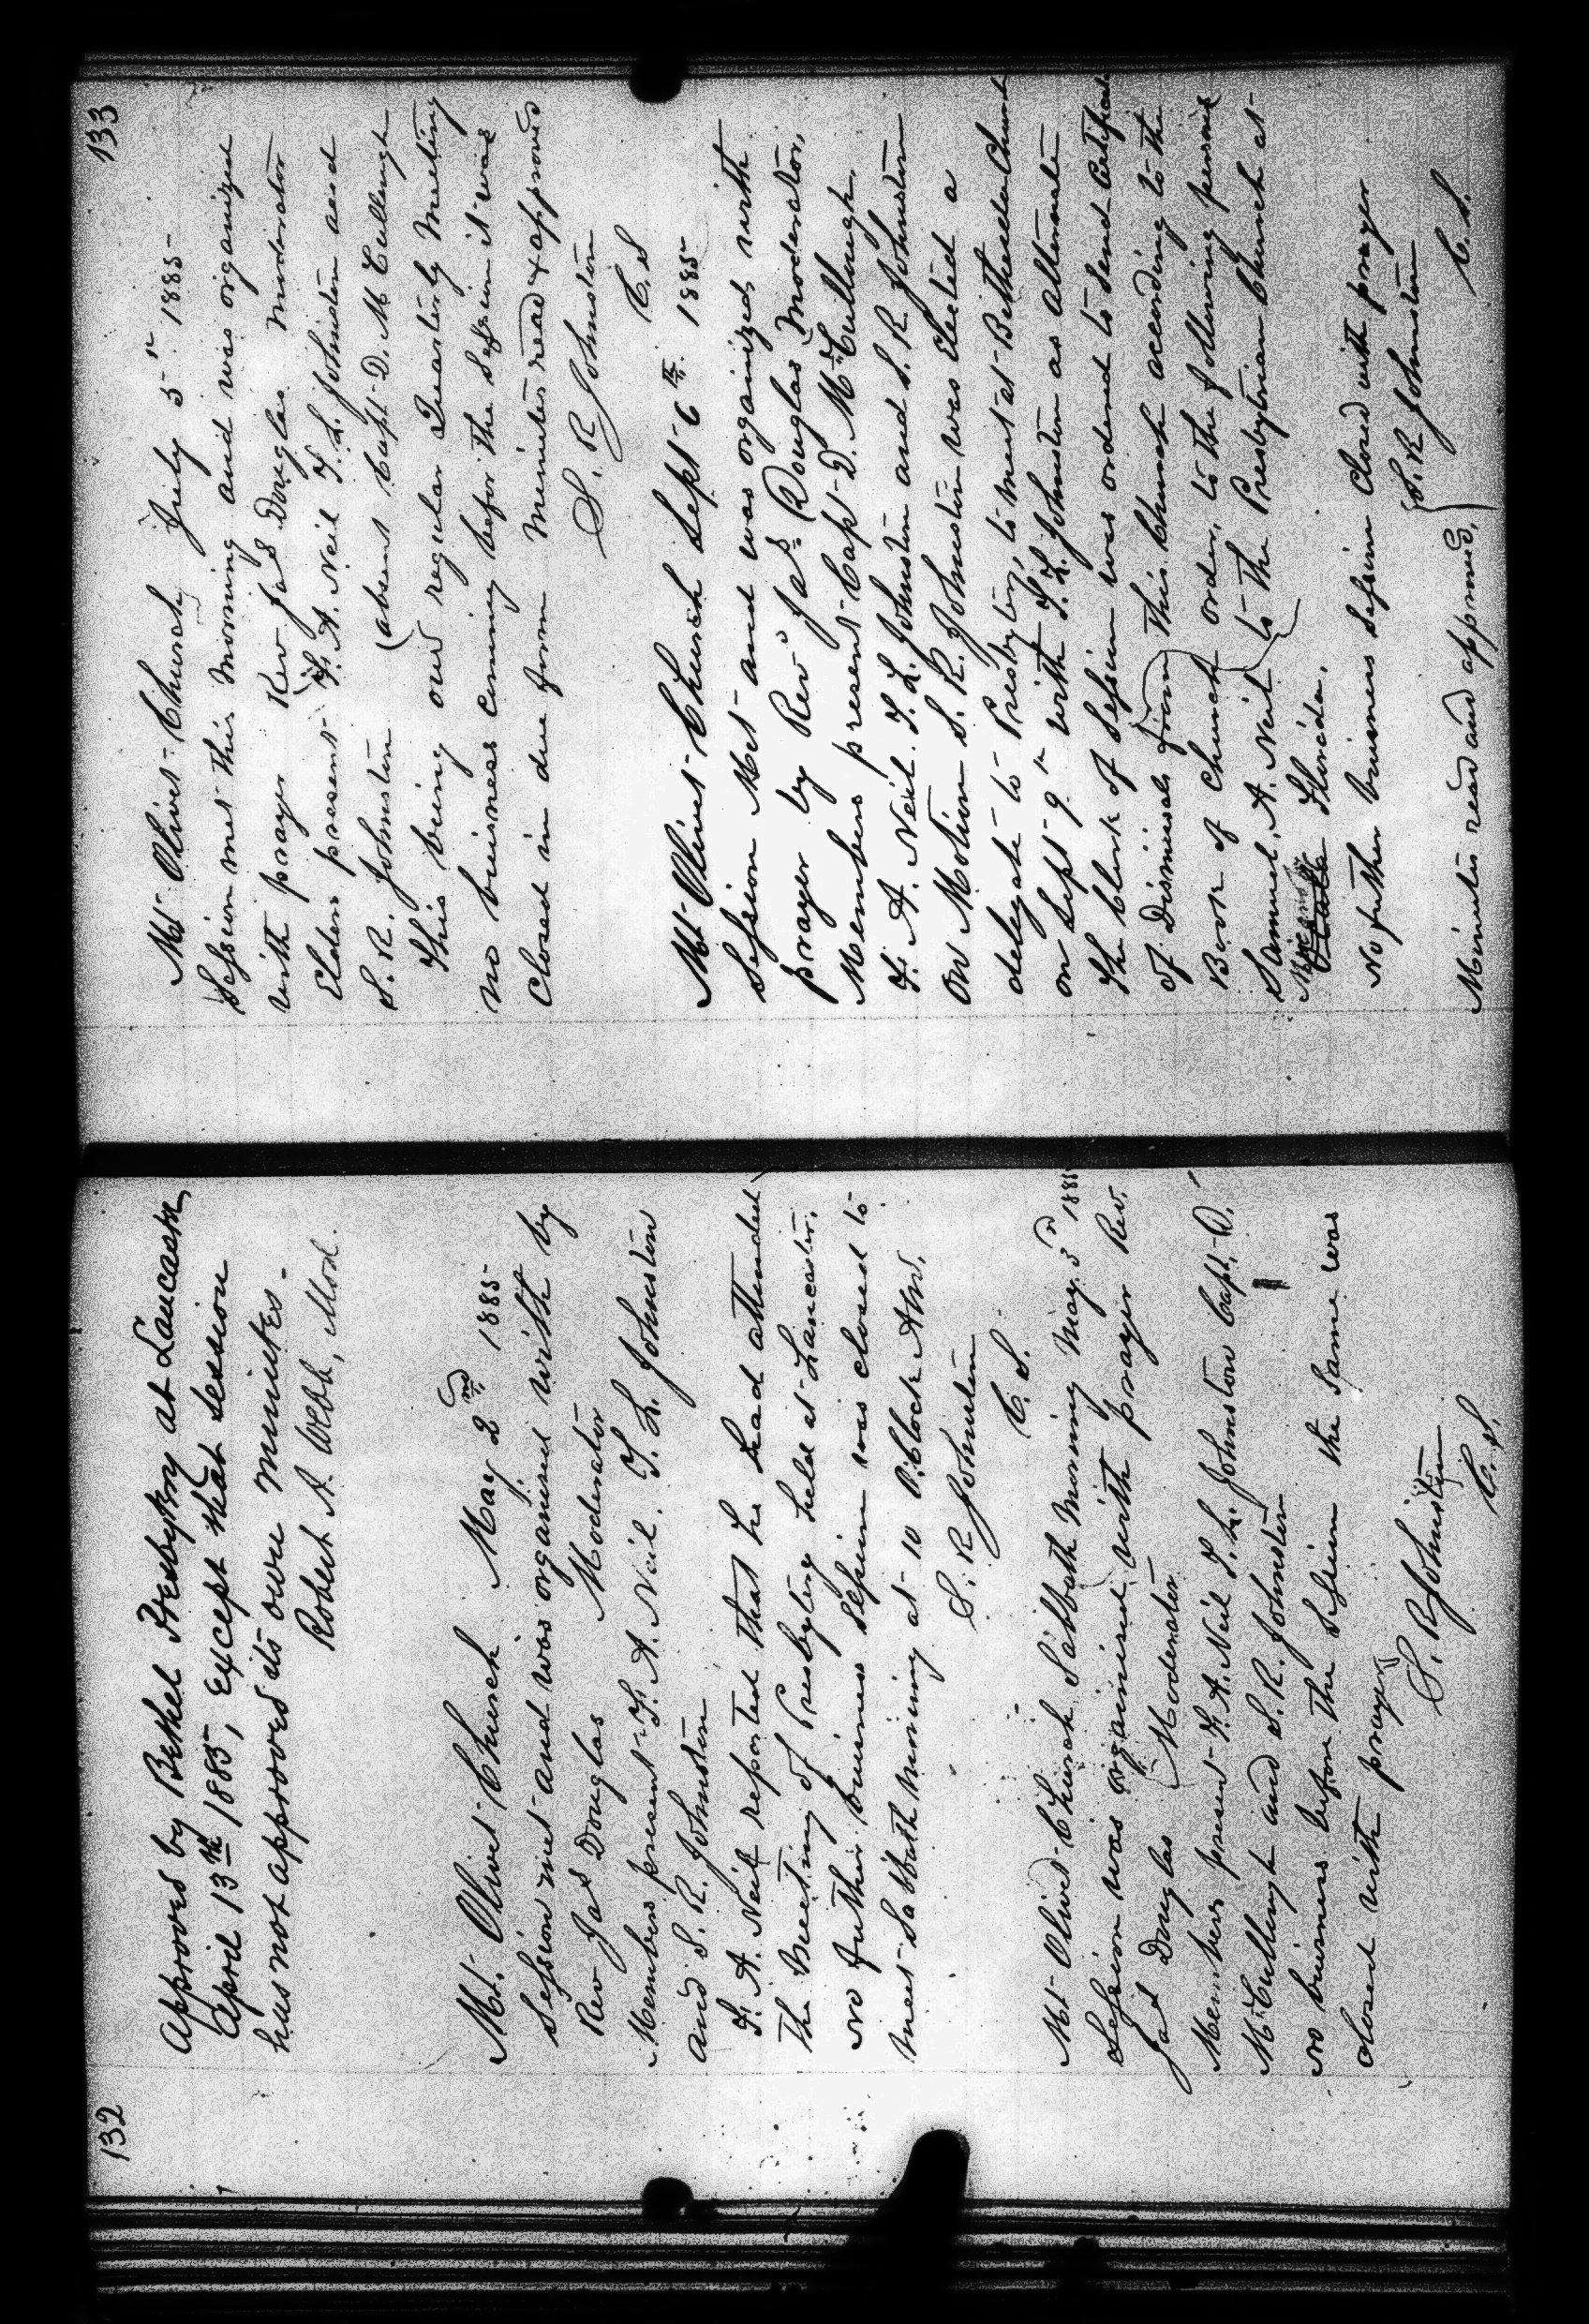 132
Approved by Bethel Presbytery at Lancaster,
April 13th 1885, except that session
has not approved its own minutes.
Robert A. Webb, Mod.
Mt. Olivet Church May 2nd 1885
Session met and was organized with by
Rev Jas Douglas Moderator
Members present F. A. Neil. T. L. Johnston
and S. R. Johnston
F. A. Neil reported that he had attended
the Meeting of Presbytery held at Lancaster.
No futher buiness session was closed to
meet Sabbath morning at 10 O.Clock AM.
S. R Johnston
C. S.
Mt Olivet Church Sabbath Morning May 3rd 1885
Session was organized with prayer Rev.
Jas Douglas Moderator
Members present F. A. Neil T. L. Johnston Capt. D.
McCullough and S. R. Johnston
no buiness before the Session the same was
closed with prayer
S. R Johnston
C. S.
133
Mt Olivet Church July 5th 1885
Session met this morning and was organized
with prayer Rev Jas Douglas Moderator
Elders present F. A. Neil T. L. Johnston and
S. R. Johnston (absent Capt D. McCullough
This being our regular Quarterly Meeting
no buisness coming befor the Session it was
Closed in due form Minutes read & approved
S. R Johnston
C. S
Mt Olivet Church Sept 6th 1885
Session Met and was organized with
prayer by Revd Jas Douglas Moderator,
Members present Capt D. McCullough.
F. A. Neil. T. L. Johnston and S. R. Johnston
On Motion S. R. Johnston was Elected a
delegate to Presbytery, to meet at Bethesda Church
on Sept 9th with T. L. Johnston as alternate
The Clerk of Session was ordered to send Certificate
of Dismissal from this Church according to the
Book of Church order, to the following persons
Samuel. A. Neil to the Presbytrian Church at
State Florida.
No futher buisness Session Closed with prayer
S. R Johnston
Minutes read and approved, C. S.